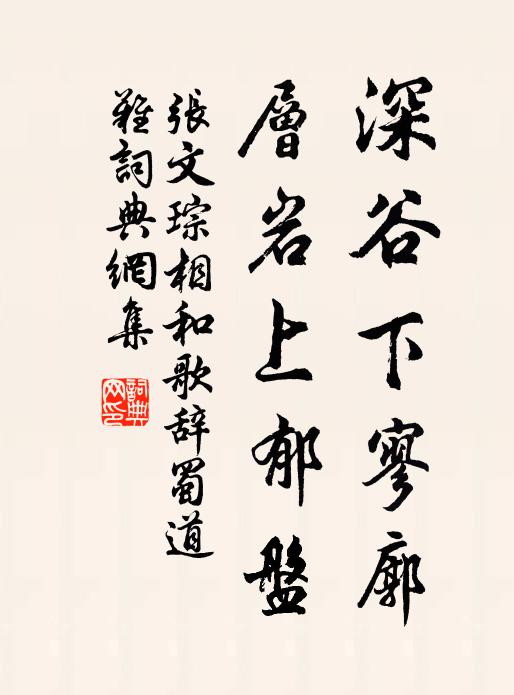 深谷下寥廓
層岩上郁盤
張文琮相和歌辞蜀道
難詞典網集
詞典
网印